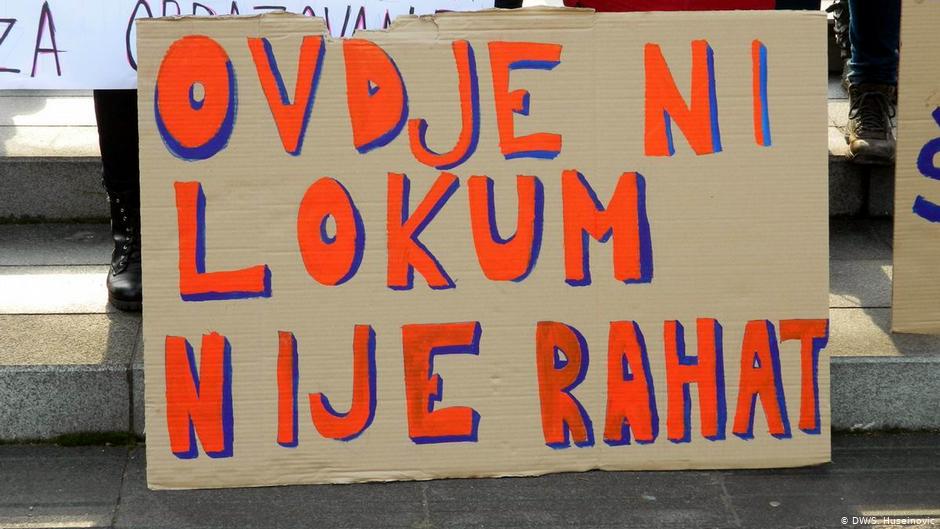 ZA OBRAZOVANJE
OVDJE NI
LOKUM
NIJE RAHAT
© DW/S. Huseinovic